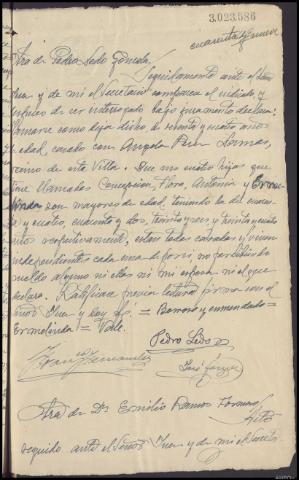 3.023.586
cuarenta y nueve
Dra de Pedro Ledo Gonzalez
Seguidamente ante el Señor
Juez y de mi el Secretario comparece el indicado y
impuesto de ser interrogado bajo juramento declara:
llamarse como deja dicho de setenta y cuatro años
de edad, casado con Angela Lomas,
vecino de esta Villa. Que sus cuatro hijos que
tiene llamados Concepcion, Flora, Antonio y Erme-
linda son mayores de edad, teniendo la de cuaren-
ta y cuatro, cuarenta y dos, treinta y seis, y treinta y cuatro
años respectivamente, estan todos casados y viven
independientes cada uno de por si, no percibiendo
sueldo alguno ni ellos ni mi esposa ni el que
declara. Ratifica previa lectura firma con el
Señor Juez y doy fé = Borroso y enmendado =
Ermelinda = Vale.
Pedro Ledo
Franco Fernandez
José
Dra de Dn Emilio Ramos Fornos
seguido ante el Señor Juez y de mi el Secreto